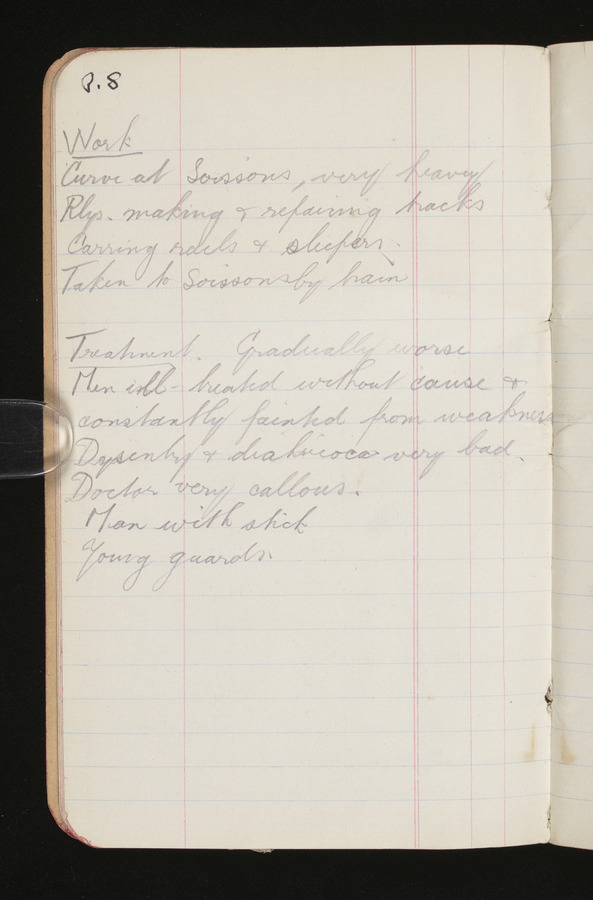 P.8
Work
Curve at Soissons, very heavy
Rlys. making & repairing tracks
Carring rails & sleepers.
Taken to Soissons by train
Treatment. Gradually worse
Men ill-treated without cause &
constantly fainted from weakness
Dysentry & diahrioca very bad.
Doctor very callous.
Man with stick
Young guards.